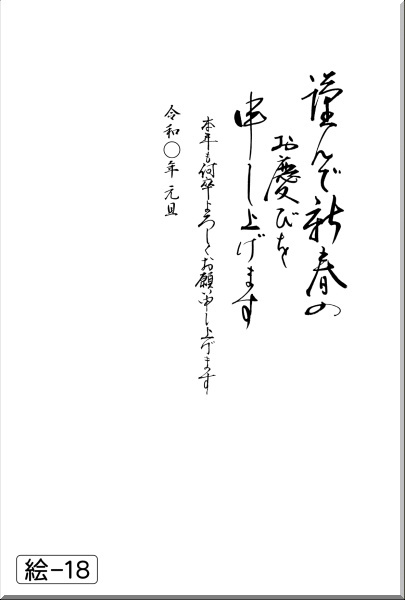 謹んで新春の
お慶びを
申し上げます
本年も何卒よろしくお願い申し上げます
令和〇年 元旦
絵-18